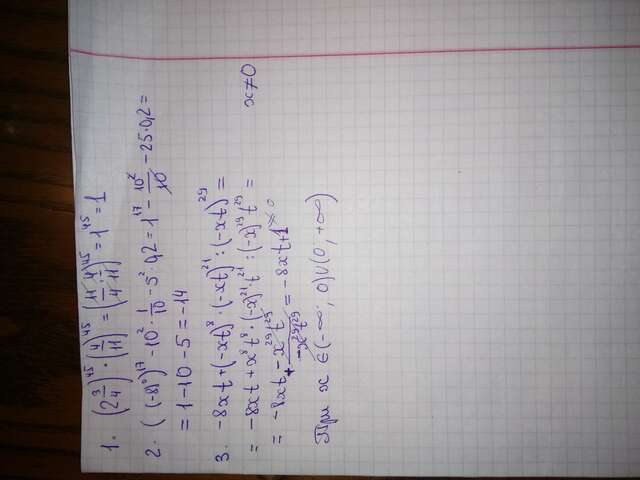 1. (2 3/4)^45 · (4/11)^45 = (11/4 · 4/11)^45 = 1^45 = 1
2. ((-8)^0)^17 - 10^2 · 1/10 - 5^2 · 0,2 = 1^17 - 10^2/10 - 25·0,2 =
= 1 - 10 - 5 = -14
3. -8xt + (-xt)^8 · (-xt)^21 : (-xt)^29 =
= -8xt + x^8 t^8 · (-x)^21 t^21 : (-x)^29 t^29 = x≠0
= -8xt + -x^29 t^29 / -x^29 t^29 = -8xt+1
При x ∈ (-∞; 0)∪(0, +∞)